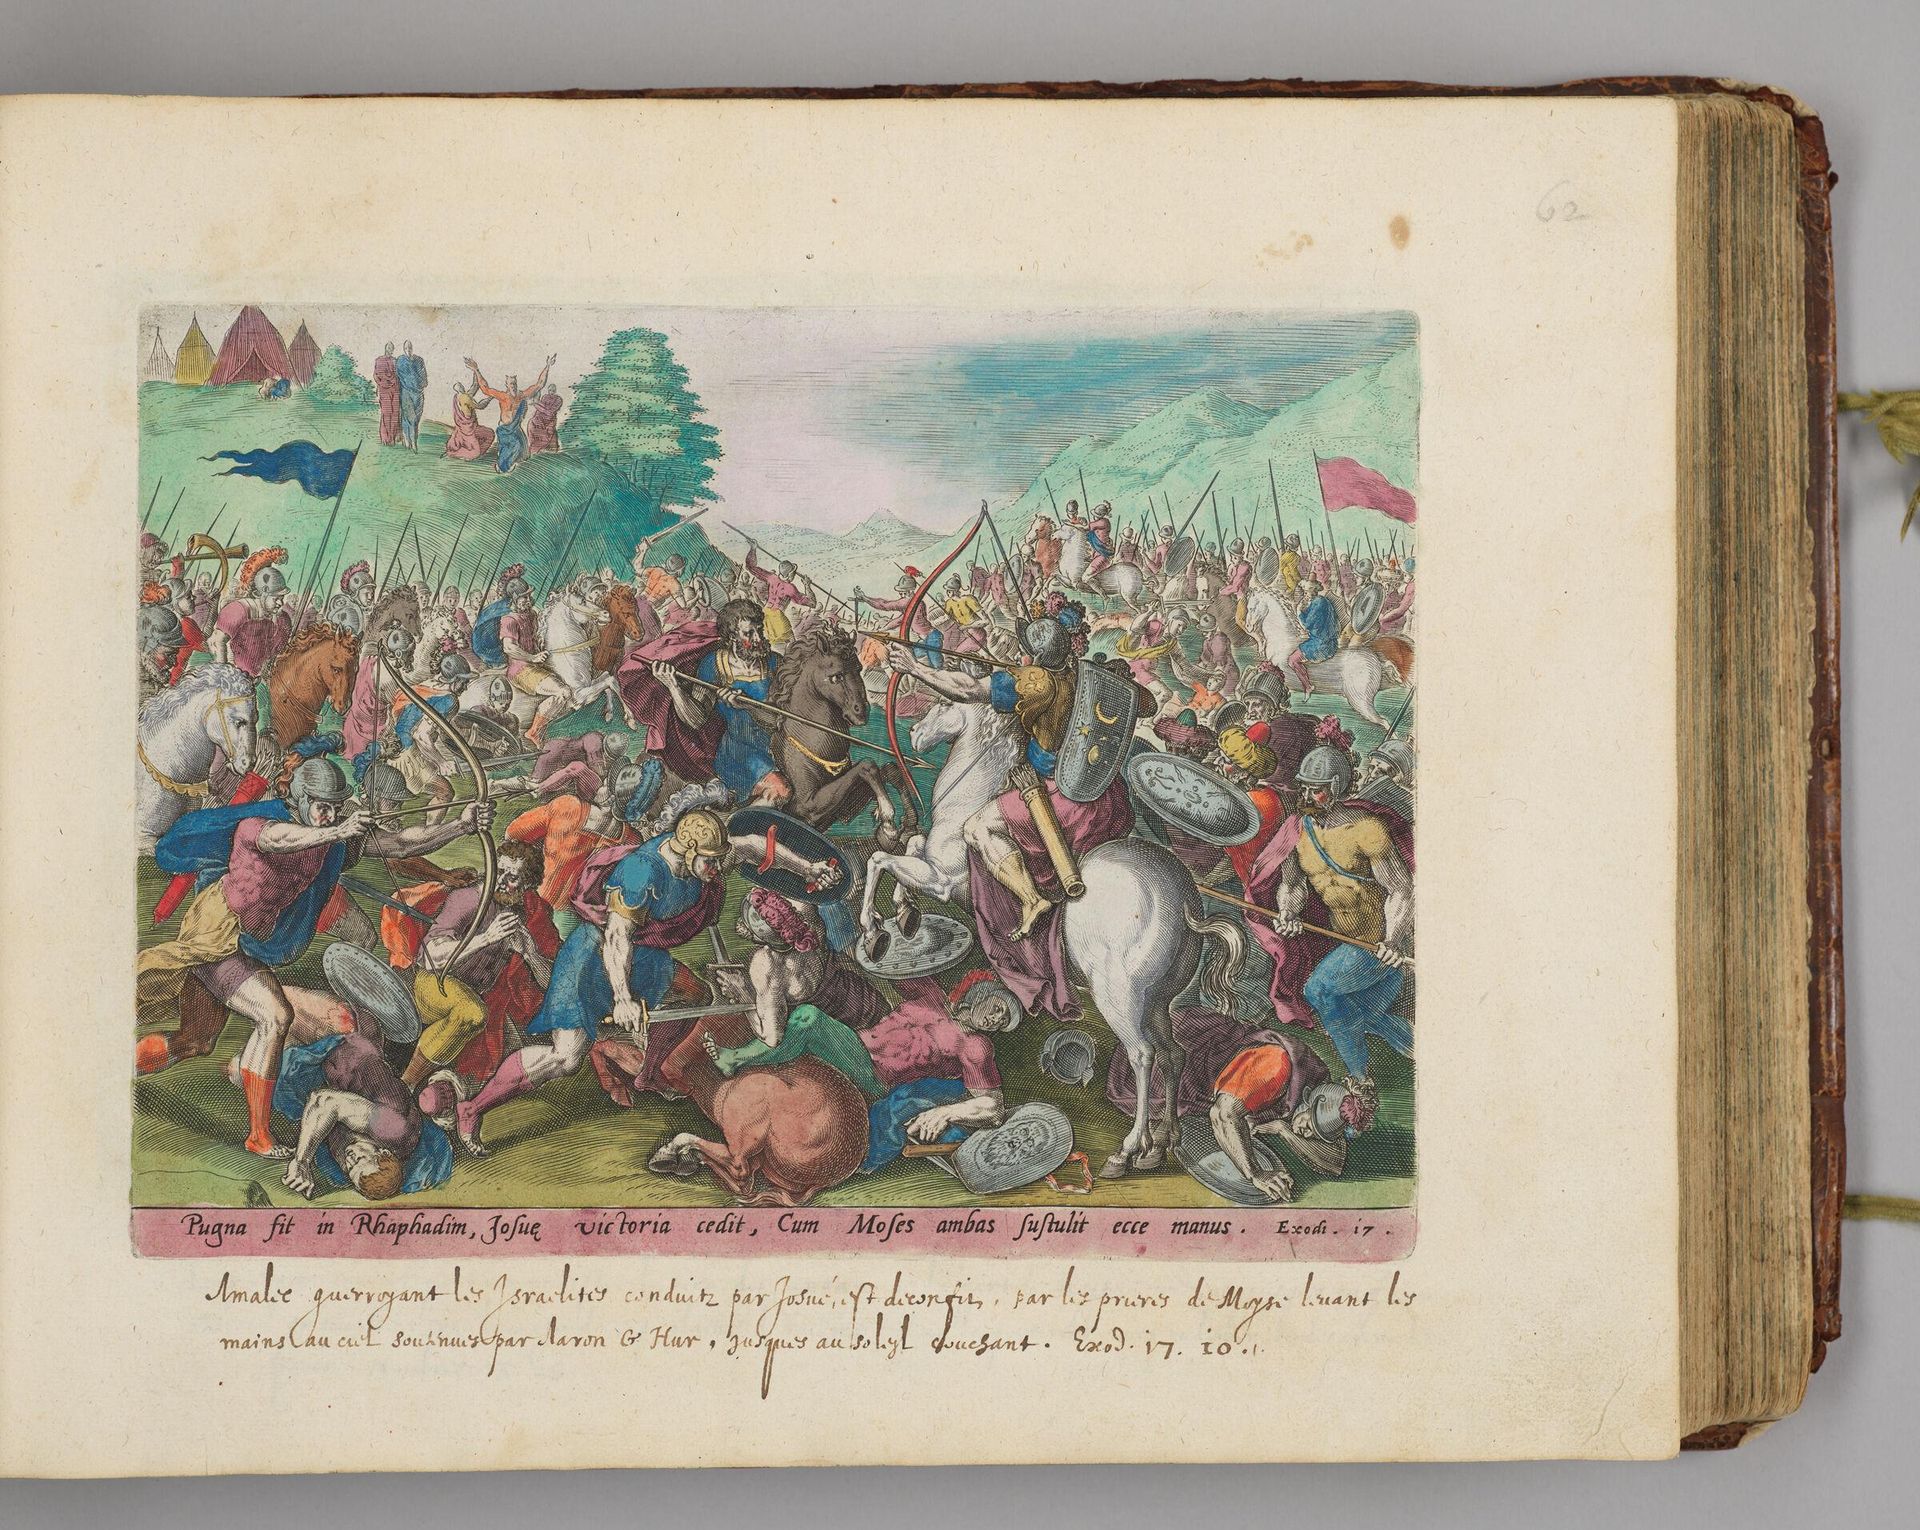 62
Pugna fit in Rhaphadim, Josuę victoria cedit, Cum Moses ambas sustulit ecce manus. Exodi. 17.
Amalec guerroyant les Israelites conduitz par Josué, est deconfit, par les prieres de Moyse levant les
mains au ciel soutenues par Aaron & Hur, jusques au soleyl couchant. Exod. 17. 10.